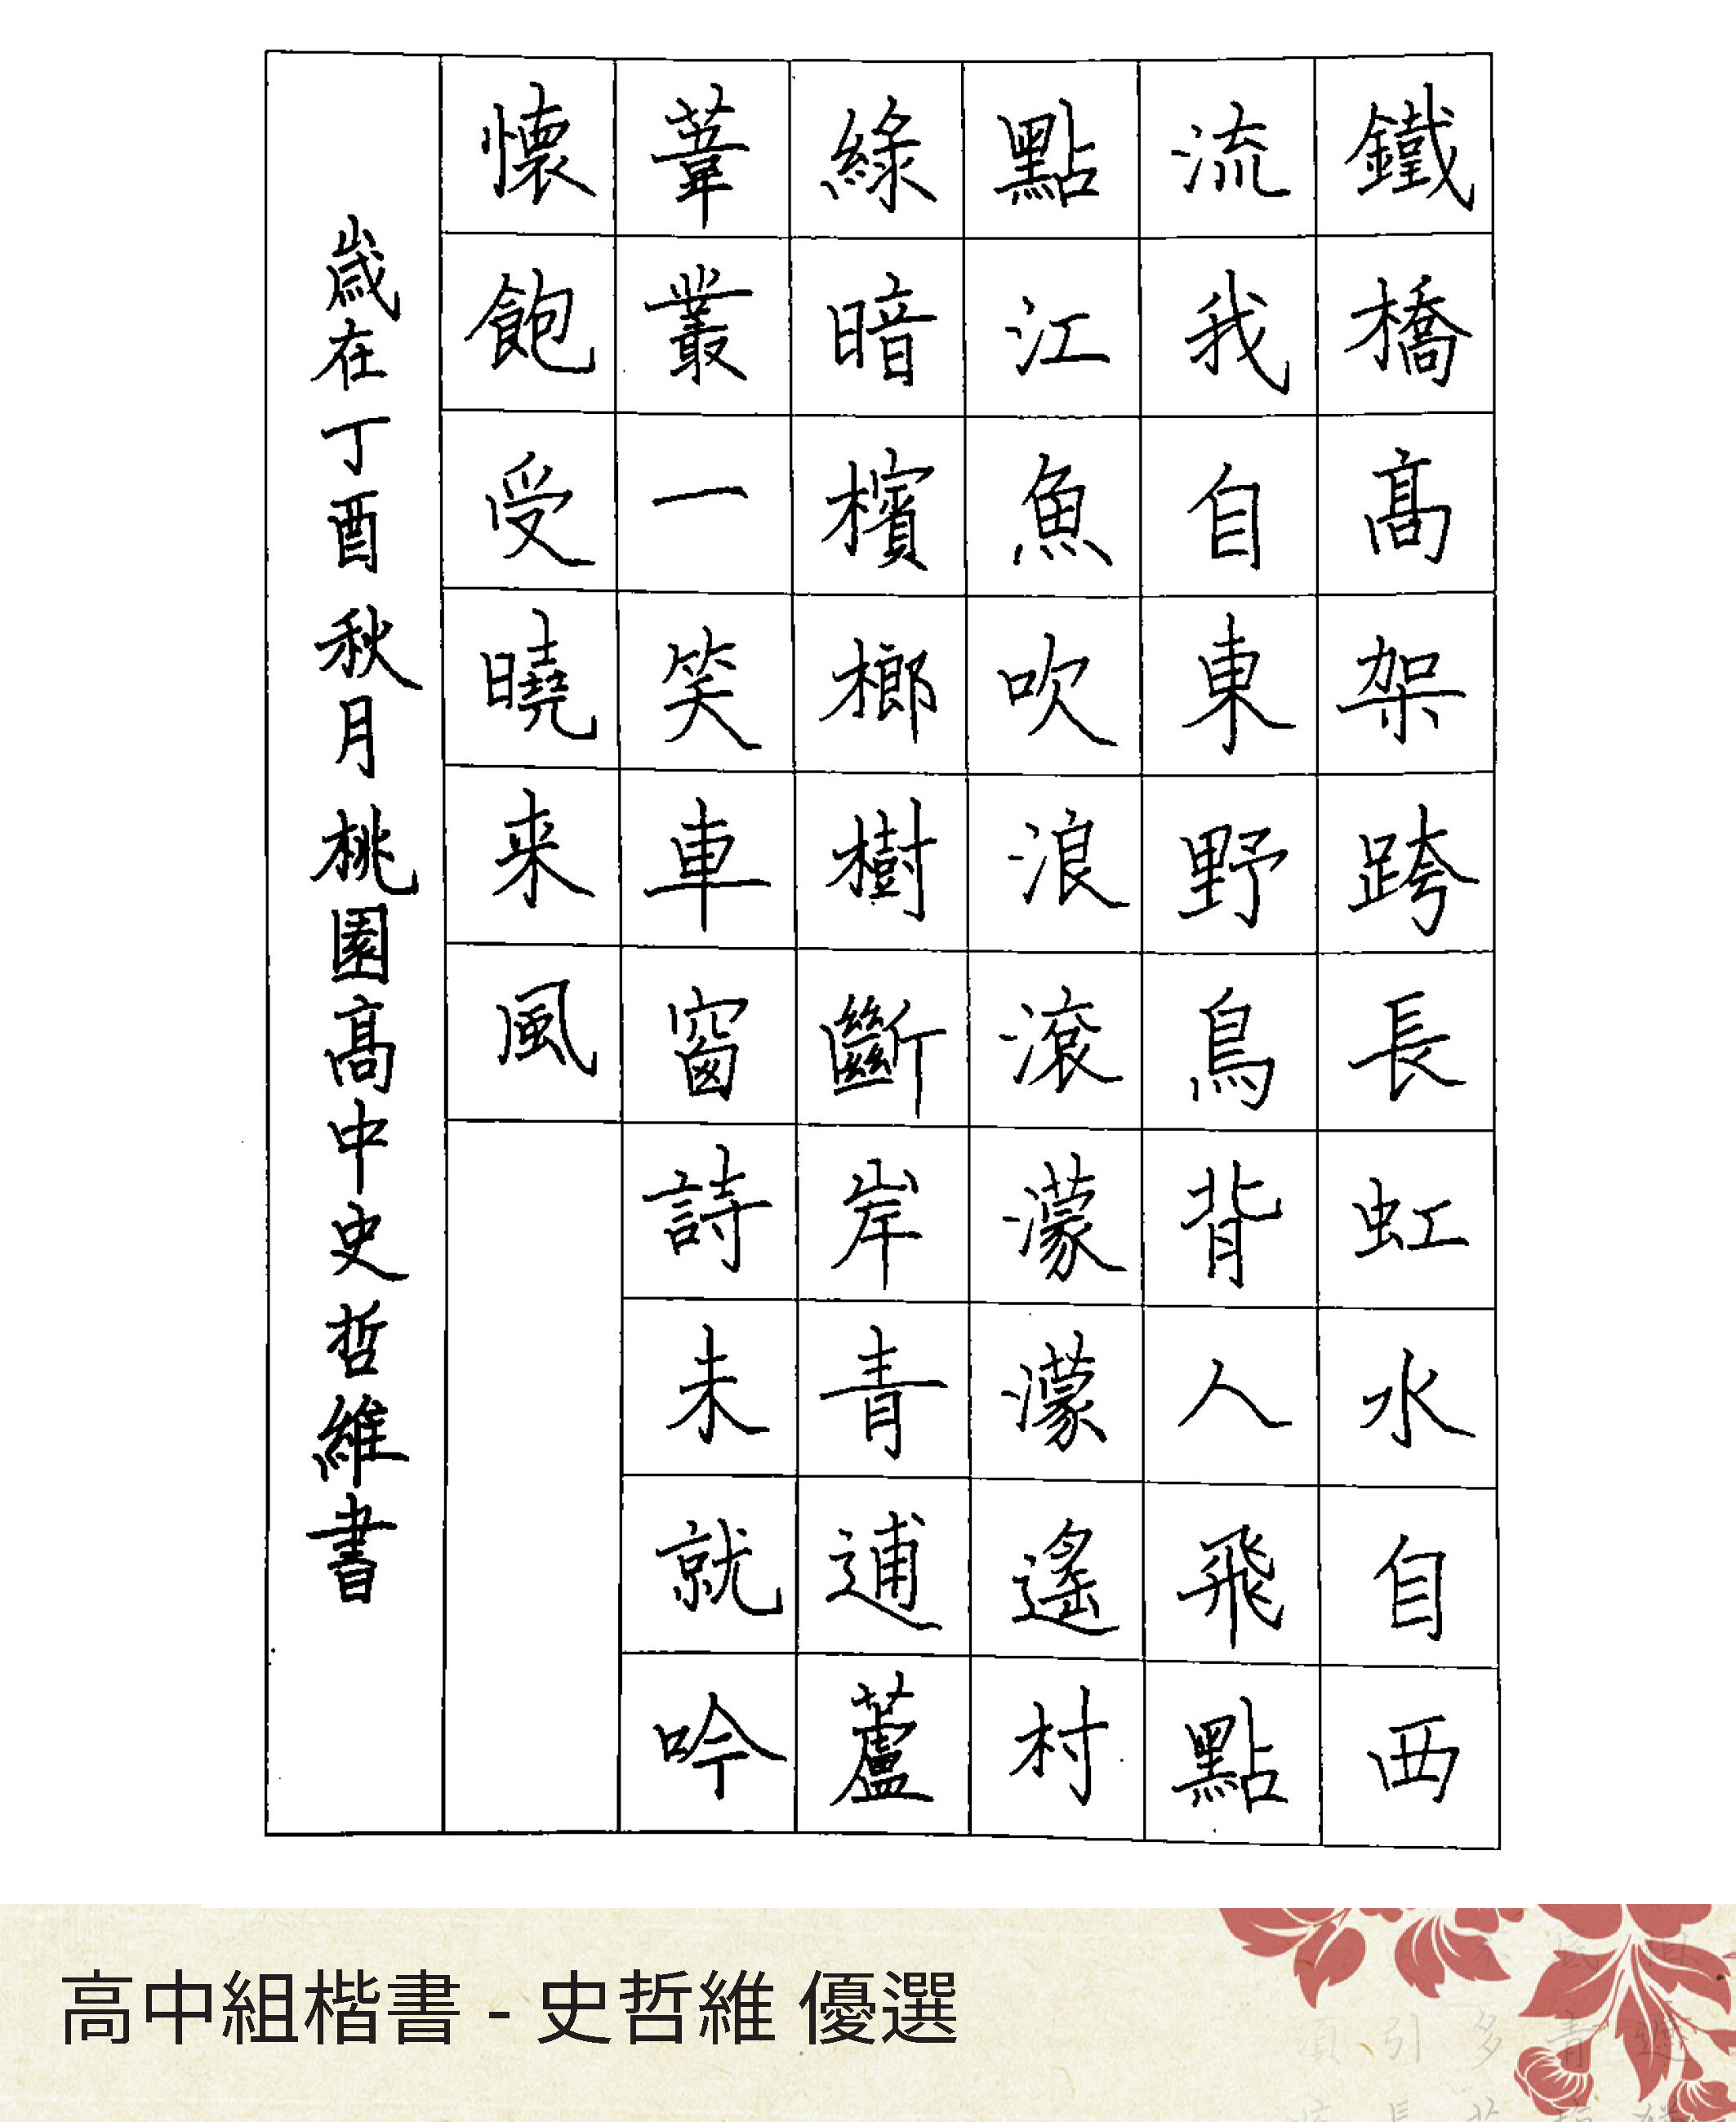 鐵橋高架跨長虹水自西
流我自東野鳥背人飛點
點江魚吹浪滾濛濛遙村
綠暗檳榔樹斷岸青逋蘆
葦叢一笑車窗詩未就吟
懷飽受曉来風
歲在丁酉秋月桃園高中史哲維書
高中組楷書 - 史哲維 優選